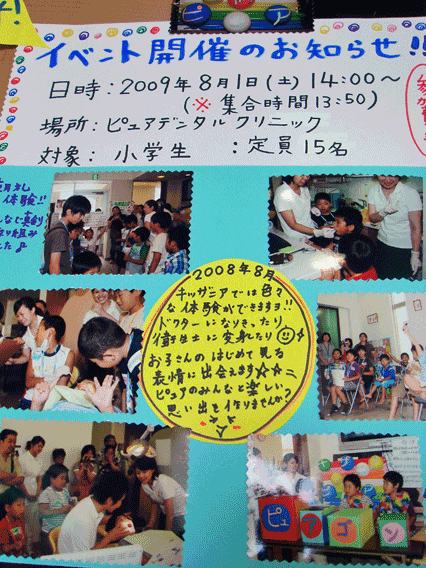 ピュア
イベント開催のお知らせ!!
日時:2009年8月1日(土)14:00～
(※集合時間13:50)
場所:ピュアデンタルクリニック
対象:小学生 :定員15名
体験!!
2008年8月
キッザニアでは色々
な体験ができますョ!!
ドクターになりきったり
衛生士に変身したり
お子さんのはじめて見る
表情に出会えます☆☆
ピュアのみんなと楽しい
思い出を作りませんか?
ピュアゴン